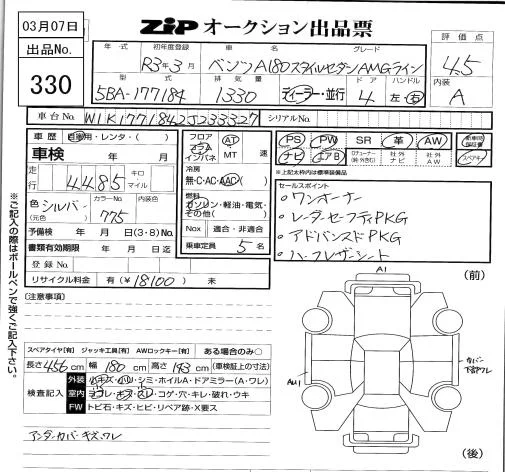 03月07日
ZiP オークション出品票
出品No.
330
評価点
4.5
内装
A
年・式 初年度登録 車名 グレード
R3年3月 ベンツA180スタイルセダンAMGライン
型式 排気量 ドア ハンドル
5BA-177184 1330 ディーラー・並行 4 左・右
車台No. W1K1771842J233327 シリアルNo.
車歴 自家用・レンタ・( )
車検 年 月
走行 4485 キロ マイル
色 (元色) シルバー カラーNo. 775 内装色
予備検 年 月 日(3・8)No.
書類有効期限 年 月 日迄
登録No.
リサイクル料金 有(¥18100) 未
フロア AT
コラム インパネ MT 速
冷房
無・C・AC・AAC
燃料
ガソリン・軽油・電気・その他( )
Nox 適合・非適合
乗車定員 5 名
PS PW SR 革 AW
ナビ エアB 社外ナビ 社外AW スペアキー
※上記太枠内は標準装備品
セールスポイント
・ワンオーナー
・レーダーセーフティPKG
・アドバンスドPKG
・ハーフレザーシート
※ご記入の際はボールペンで強くご記入下さい。
[注意事項]
スペアタイヤ[有] ジャッキ工具[有] AWロックキー[有] ある場合のみ○
長さ456cm 幅180cm 高さ143cm (車検証上の寸法)
検査記入
外装 小キズ・凹・シミ・ホイルA・ドアミラー(A・ワレ)
室内 ヨゴレ・キズ・スレ・コゲ・穴・キレ・破れ・ウキ
FW トビ石・キズ・ヒビ・リペア跡・X要ス
アンダーカバーキズ、ワレ
A1
(前)
AU1
カバー
下部ワレ
(後)